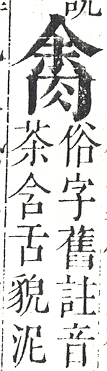 俗字舊註音
茶含舌貌泥